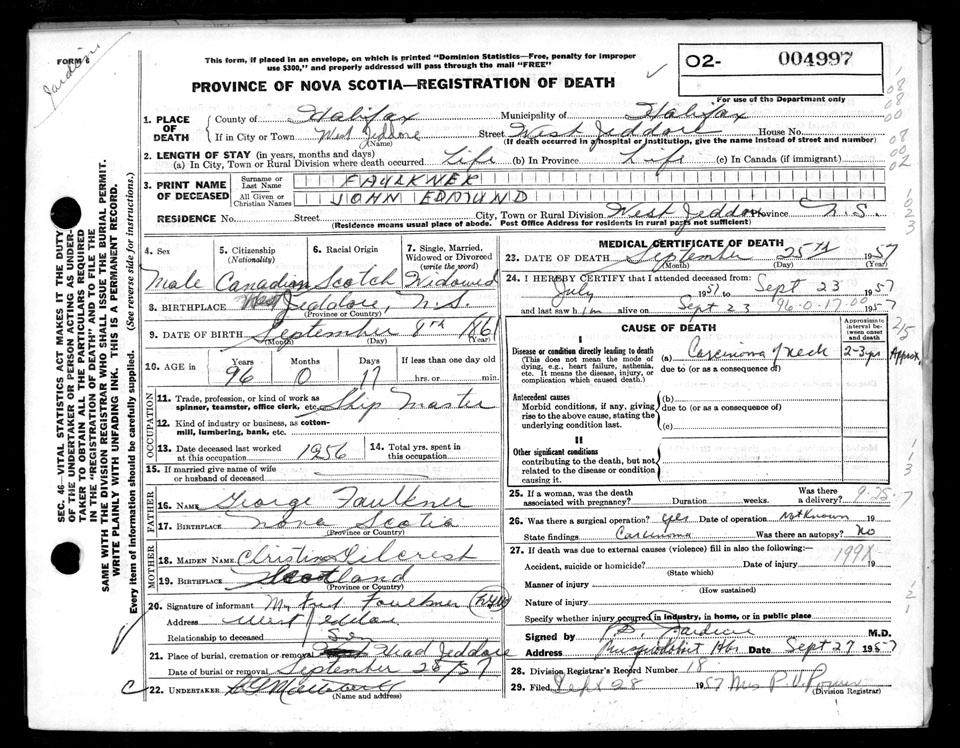 FORM
Jardin
This form, if placed in an envelope, on which is printed "Dominion Statistics—Free, penalty for improper
use $300," and properly addressed will pass through the mail "FREE"
PROVINCE OF NOVA SCOTIA—REGISTRATION OF DEATH
O2- 004997
For use of the Department only
SEC. 46— VITAL STATISTICS ACT MAKES IT THE DUTY
OF THE UNDERTAKER OR PERSON ACTING AS UNDER-
TAKER TO OBTAIN ALL THE PARTICULARS REQUIRED
IN THE "REGISTRATION OF DEATH" AND TO FILE THE
SAME WITH THE DIVISION REGISTRAR WHO SHALL ISSUE THE BURIAL PERMIT.
WRITE PLAINLY WITH UNFADING INK. THIS IS A PERMANENT RECORD.
Every item of information should be carefully supplied. (See reverse side for instructions.)
1. PLACE OF DEATH
County of Halifax Municipality of Halifax
If in City or Town West Jeddore Street West Jeddore House No.
(Name) (If death occurred in a hospital or institution, give the name instead of street and number)
2. LENGTH OF STAY (in years, months and days)
(a) In City, Town or Rural Division where death occurred Life (b) In Province Life (c) In Canada (if immigrant)
3. PRINT NAME OF DECEASED
Surname or Last Name FAULKNER
All Given or Christian Names JOHN EDMUND
RESIDENCE No. Street City, Town or Rural Division West Jeddore Province N.S.
(Residence means usual place of abode. Post Office Address for residents in rural parts not sufficient)
4. Sex 5. Citizenship (Nationality) 6. Racial Origin 7. Single, Married, Widowed or Divorced (write the word)
Male Canadian Scotch Widowed
8. BIRTHPLACE West Jeddore, N.S.
(Province or Country)
9. DATE OF BIRTH September 8TH 1861
(Month) (Day) (Year)
10. AGE in Years Months Days If less than one day old
96 0 17 hrs. or min.
OCCUPATION
11. Trade, profession, or kind of work as spinner, teamster, office clerk, etc. Ship Master
12. Kind of industry or business, as cotton-mill, lumbering, bank, etc.
13. Date deceased last worked at this occupation 1956 14. Total yrs. spent in this occupation
15. If married give name of wife or husband of deceased
FATHER
16. NAME George Faulkner
17. BIRTHPLACE Nova Scotia
(Province or Country)
MOTHER
18. MAIDEN NAME Christine Gilcrest
19. BIRTHPLACE Scotland
(Province or Country)
20. Signature of informant Faulkner
Address West Jeddore
Relationship to deceased Son
21. Place of burial, cremation or removal Head Jeddore
Date of burial or removal September 28/57
22. UNDERTAKER
(Name and address)
MEDICAL CERTIFICATE OF DEATH
23. DATE OF DEATH September 25TH 1957
(Month) (Day) (Year)
24. I HEREBY CERTIFY that I attended deceased from:
July 1957 to Sept 23 1957
and last saw him alive on Sept 23 1957
96-0-17-00
CAUSE OF DEATH
Approximate interval between onset and death
I
Disease or condition directly leading to death (a) Carcinoma of neck 2-3 yrs Approx.
(This does not mean the mode of dying, e.g., heart failure, asthenia, etc. It means the disease, injury, or complication which caused death.)
due to (or as a consequence of)
Antecedent causes (b)
Morbid conditions, if any, giving rise to the above cause, stating the underlying condition last.
due to (or as a consequence of)
(c)
II
Other significant conditions
contributing to the death, but not related to the disease or condition causing it.
25. If a woman, was the death associated with pregnancy? Duration weeks. Was there a delivery?
9-25-7
26. Was there a surgical operation? yes Date of operation not known 19
State findings Carcinoma Was there an autopsy? No
27. If death was due to external causes (violence) fill in also the following:—
199X
Accident, suicide or homicide? Date of injury 19
(State which)
Manner of injury
(How sustained)
Nature of injury
Specify whether injury occurred in industry, in home, or in public place
Signed by Jardine M.D.
Address Musquodoboit Hbr Date Sept 27 1957
28. Division Registrar's Record Number 18
29. Filed Sept 28 1957 Mrs P. V. Power
(Division Registrar)